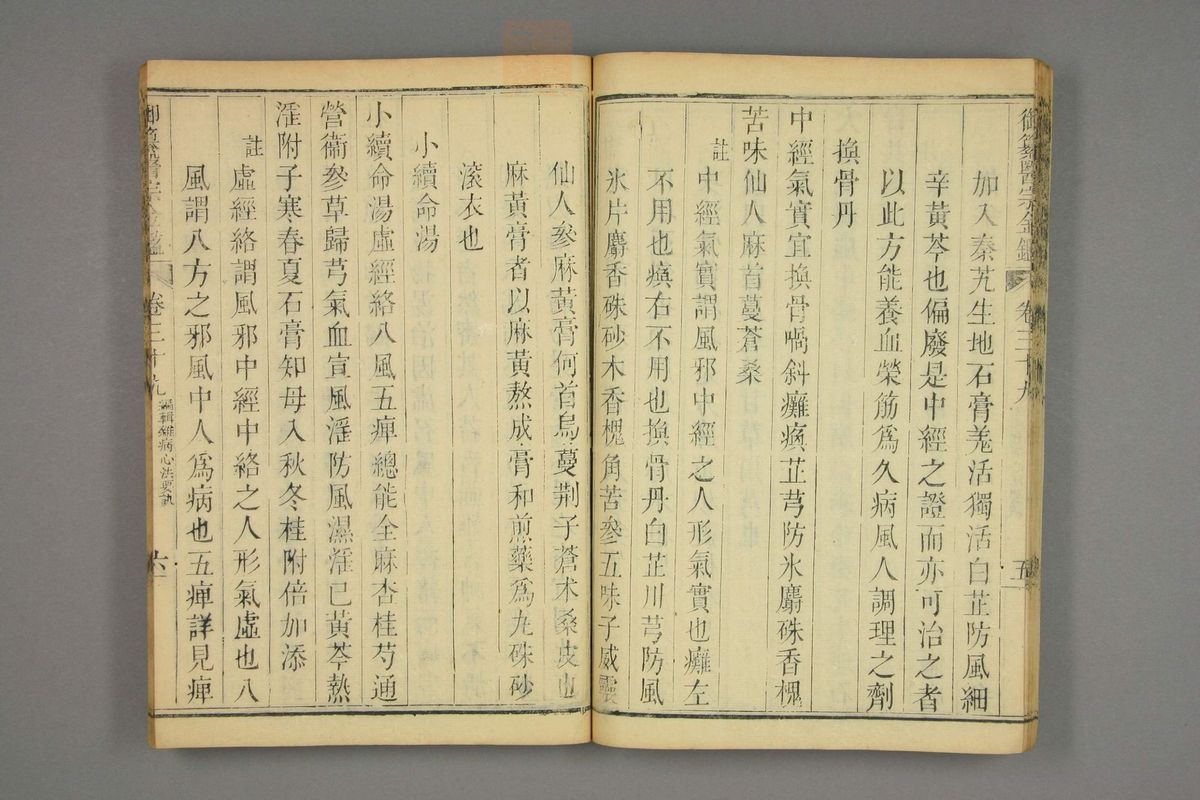 御纂醫宗金鑑 卷三十九 五
加入秦艽生地石膏羗活獨活白芷防風細
辛黄芩也偏廢是中經之證而亦可治之者
以此方能養血榮筋爲久病風人調理之劑
換骨丹
中經氣實宜換骨喎斜癱瘓芷芎防氷麝硃香槐
苦味仙人麻首蔓蒼桑
註中經氣實謂風邪中經之人形氣實也癱左
不用也瘓右不用也換骨丹白芷川芎防風
氷片麝香硃砂木香槐角苦參五味子威靈
仙人參麻黄膏何首烏蔓荆子蒼术桑皮也
麻黄膏者以麻黄熬成膏和煎藥爲丸硃砂
滚衣也
小續命湯
小續命湯虛經絡八風五痺總能全麻杏桂芍通
營衞參草歸芎氣血宣風淫防風濕淫已黄芩熱
淫附子寒春夏石膏知母入秋冬桂附倍加添
註虛經絡謂風邪中經中絡之人形氣虛也八
風謂八方之邪風中人爲病也五痺詳見痺
御纂醫宗金鑑 卷三十九 編輯雜病心法要訣 六